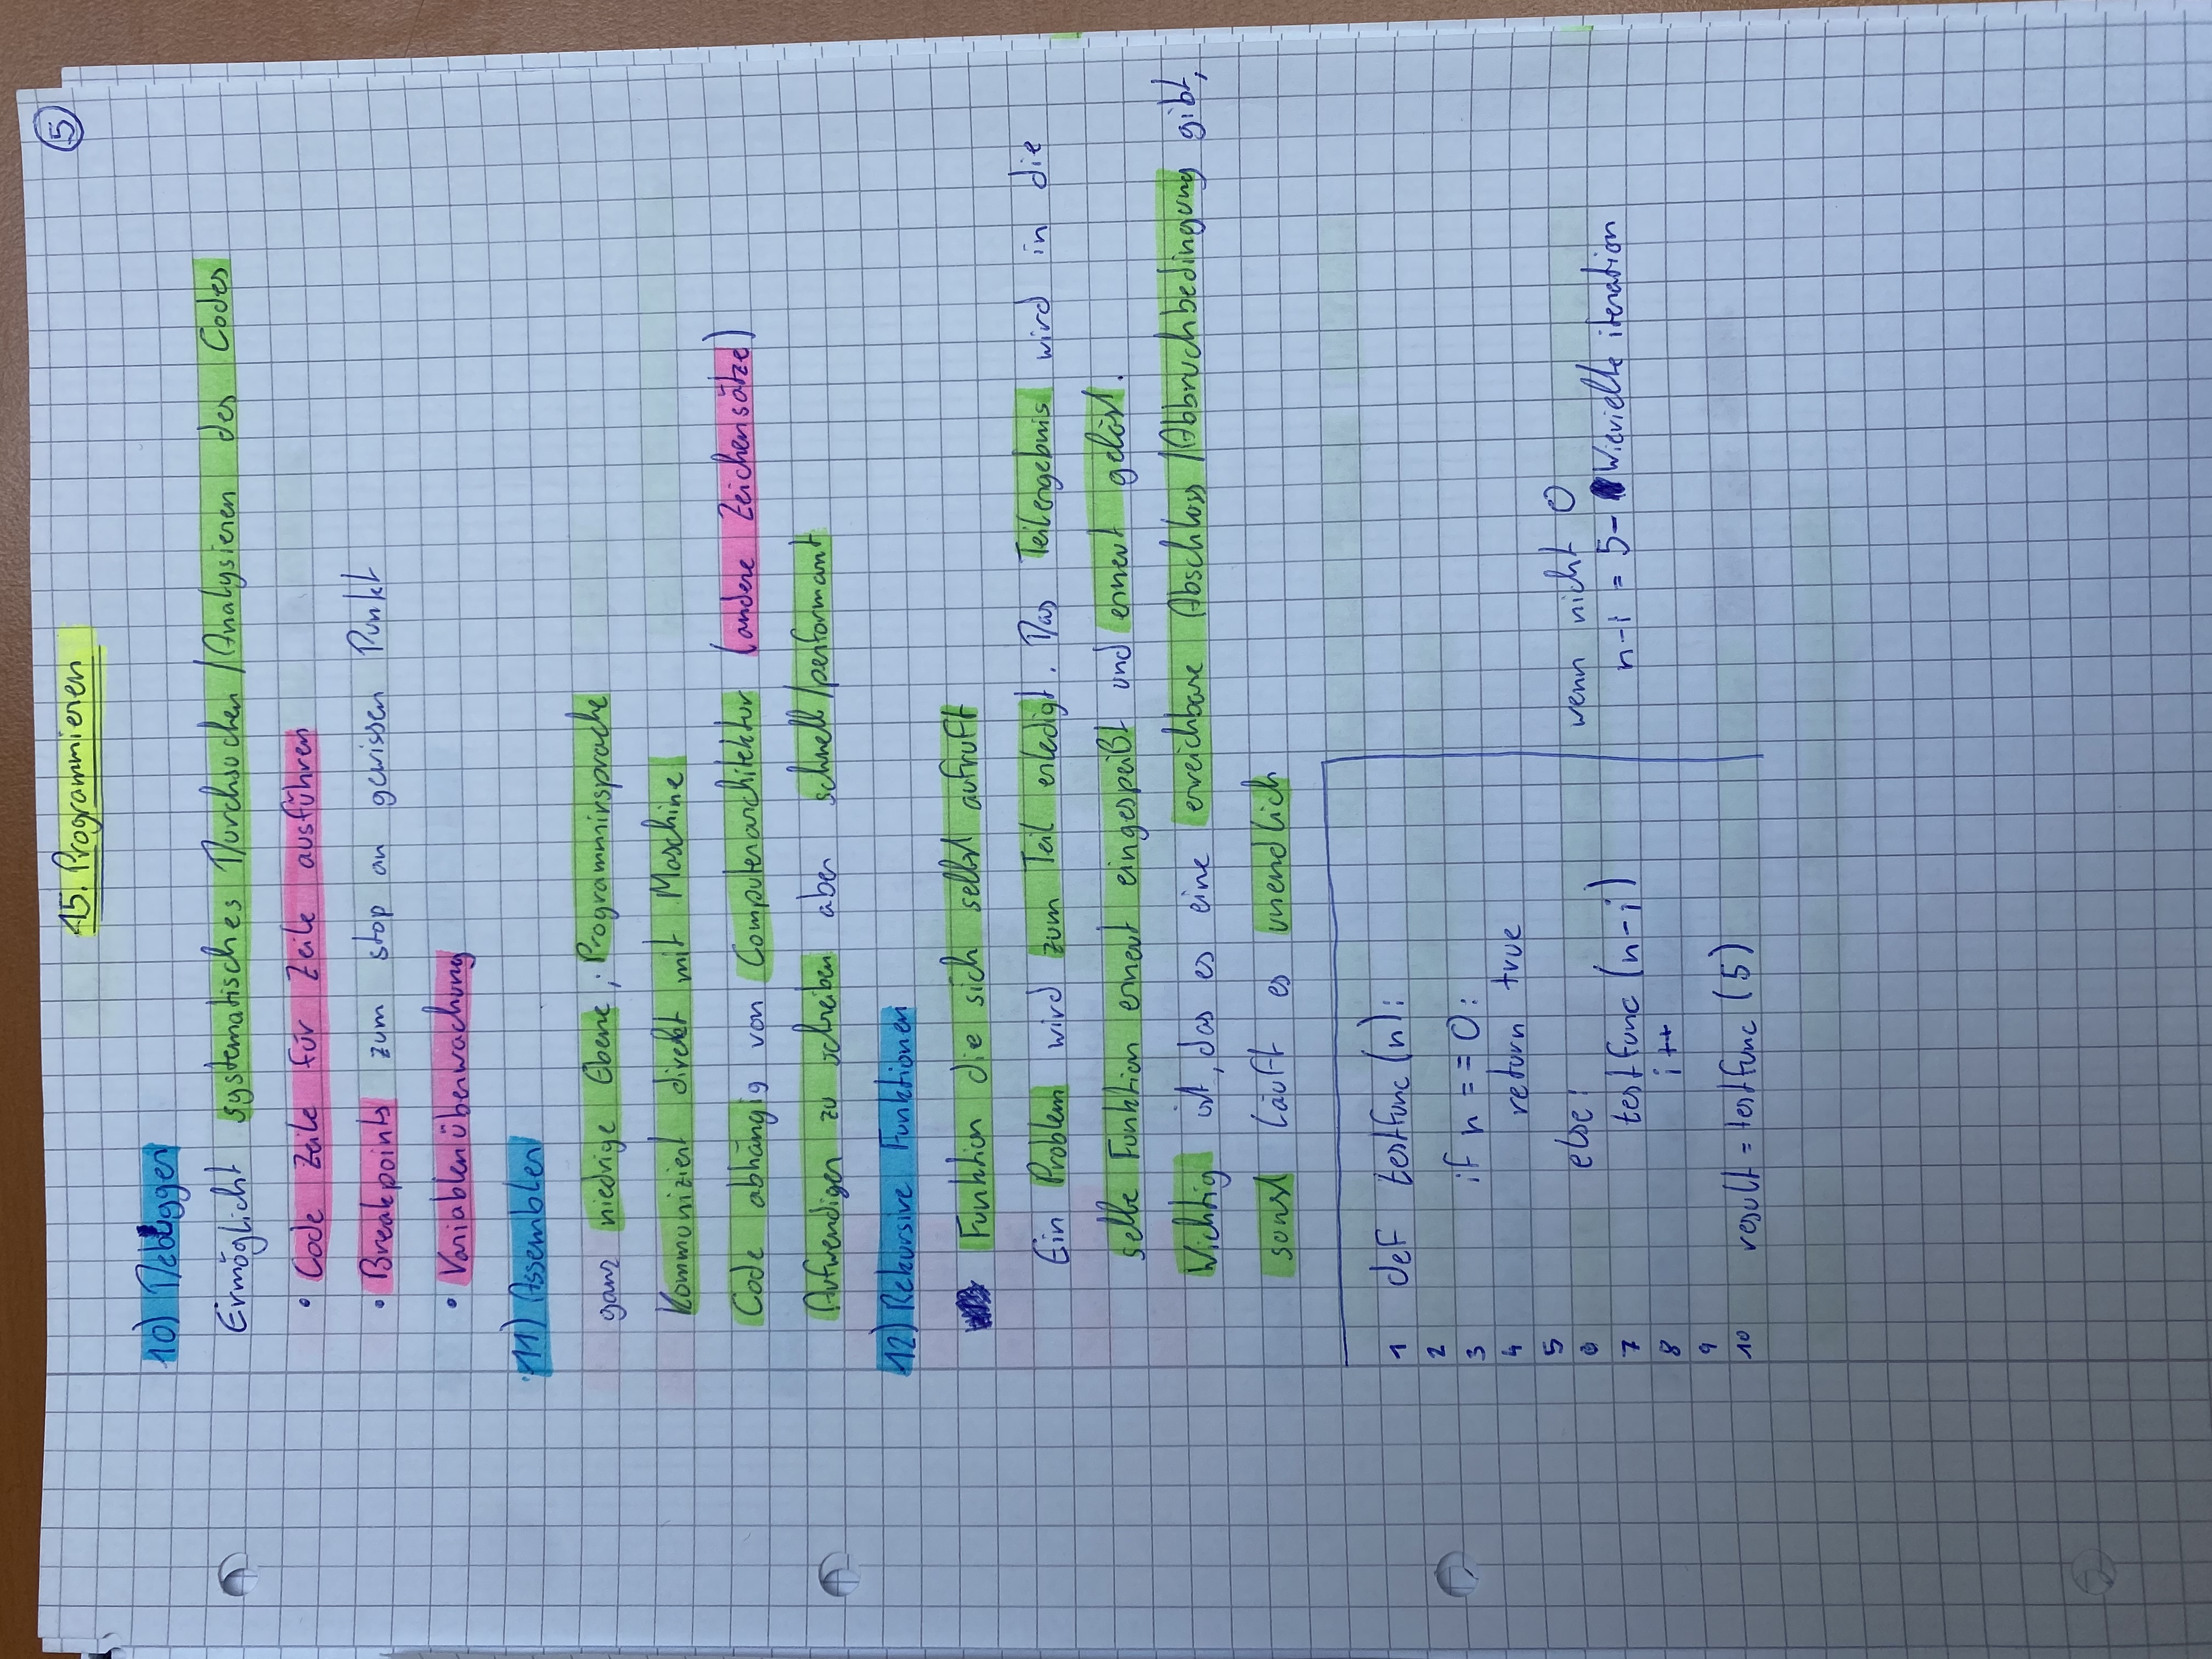 15. Programmieren
5
10) Debugger
Ermöglicht systematisches Durchsuchen/Analysieren des Codes
• Code Zeile für Zeile ausführen
• Breakpoints zum stop an gewissen Punkt
• Variablenüberwachung
11) Assembler
ganz niedrige Ebene, Programmirsprache
Kommuniziert direkt mit Maschine
Code abhängig von Computerarchitektur (andere Zeichensätze)
Aufwendiger zu schreiben aber schnell/performant
12) Rekursive Funktionen
Funktion die sich selbst aufruft
Ein Problem wird zum Teil erledigt. Das Teilergebnis wird in die
selbe Funktion erneut eingespeißt und erneut gelöst.
Wichtig ist, das es eine erreichbare Abschluss/Abbruchbedingung gibt,
sonst läuft es unendlich
1 def testfunc(n):
2
3 if n == 0:
4 return true
5
6 else:
wenn nicht 0
7 testfunc(n-i)
n-i = 5- Wievielte iteration
8 i++
9
10 result = testfunc(5)